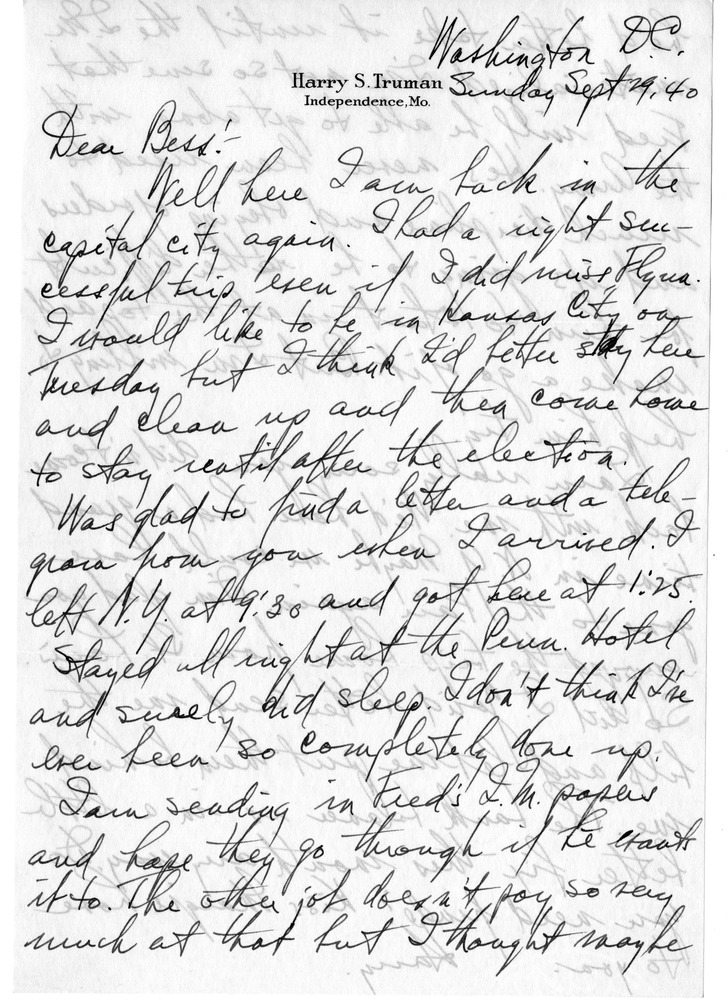 Washington D.C.
Harry S. Truman
Independence, Mo.
Sunday Sept 29, '40
Dear Bess:-
Well here I am back in the
capital city again. I had a right suc-
cessful trip even if I did miss Flynn.
I would like to be in Kansas City on
Tuesday but I think I'd better stay here
and clean up and then come home
to stay until after the election.
Was glad to find a letter and a tele-
gram from you when I arrived. I
left N.Y. at 9:30 and got here at 1:25.
Stayed all night at the Penn. Hotel
and surely did sleep. I don't think I've
ever been so completely done up.
I am sending in Fred's papers
and hope they go through if he wants
it to. The other job doesn't pay so very
much at that but I thought maybe